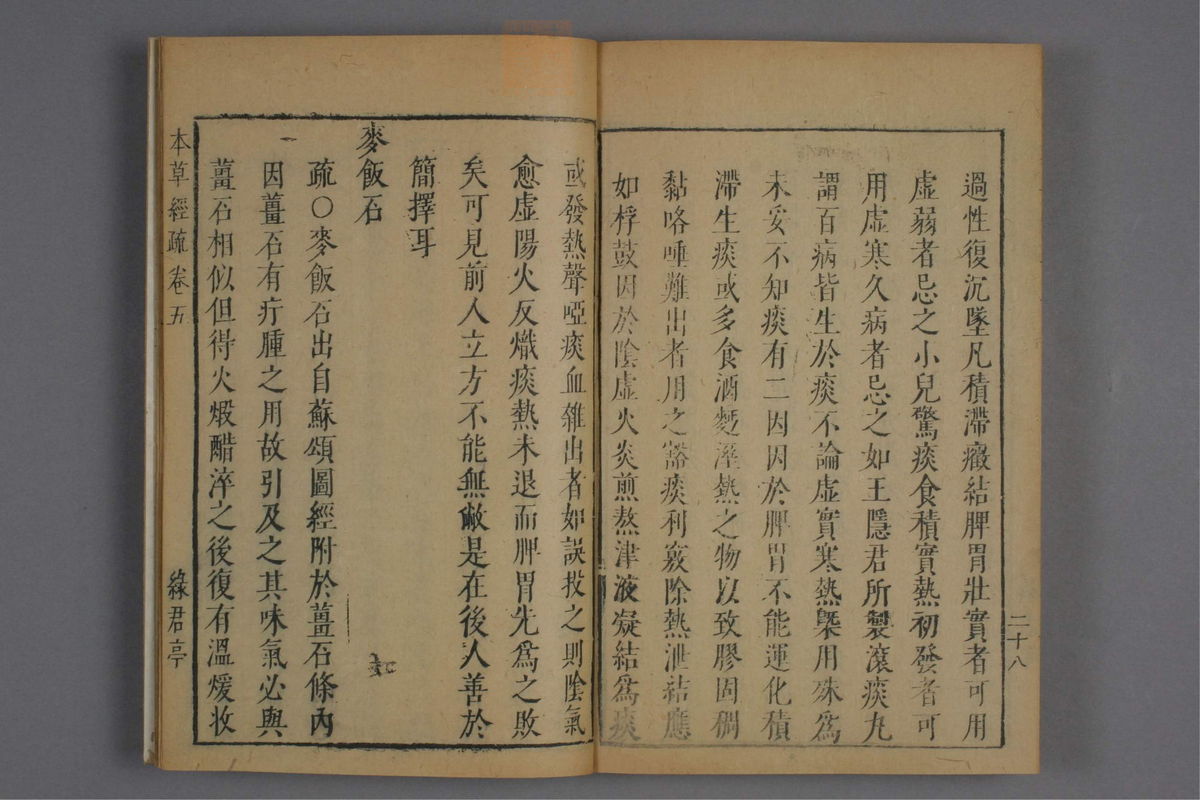 過性復沉墜凡積滯癥結脾胃壯實者可用
虛弱者忌之小兒驚痰食積實熱初發者可
用虛寒久病者忌之如王隱君所製滾痰丸
謂百病皆生於痰不論虛實寒熱槩用殊爲
未妥不知痰有二因因於脾胃不能運化積
滯生痰或多食酒麪溼熱之物以致膠固稠
黏咯唾難出者用之豁痰利竅除熱泄結應
如桴鼓因於陰虛火炎煎熬津液凝結爲痰
二十八
或發熱聲啞痰血雜出者如誤投之則陰氣
愈虛陽火反熾痰熱未退而脾胃先爲之敗
矣可見前人立方不能無敝是在後人善於
簡擇耳
麥飯石
疏○麥飯石出自蘇頌圖經附於薑石條內
因薑石有疔腫之用故引及之其味氣必與
薑石相似但得火煆醋淬之後復有溫煖收
本草經疏卷五
綠君亭